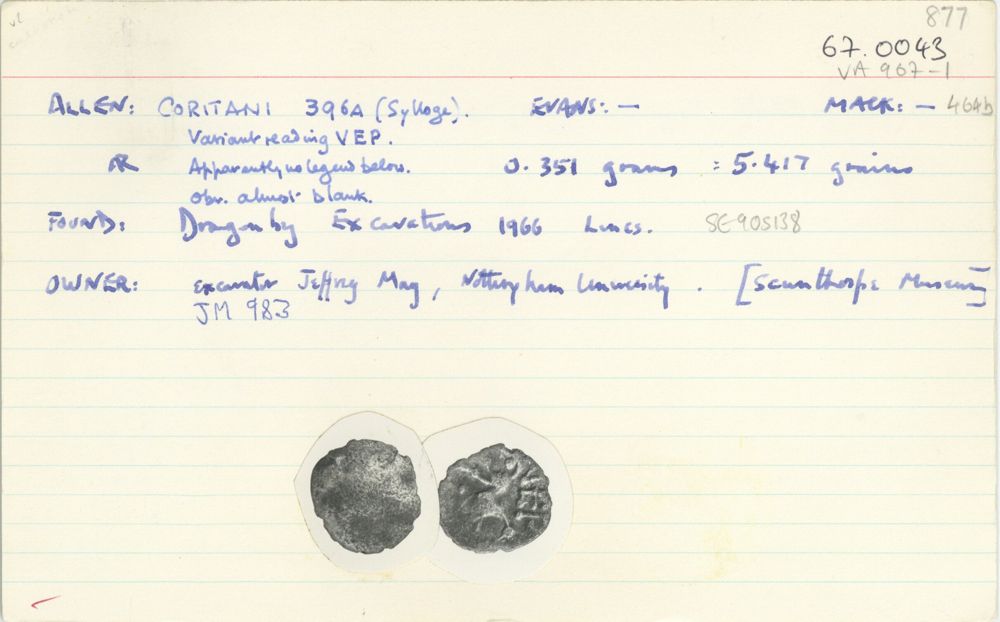 877
67.0043
VA 967-1
ALLEN: CORITANI 396A (Sylloge). EVANS: — MACK: — 464b
Variant reading VEP.
AR Apparently no legend below. 0.351 grams = 5.417 grains
Obv. almost blank.
FOUND: Dragonby Excavations 1966 Lincs. SE905138
OWNER: excavator Jeffrey May, Nottingham University. [Scunthorpe Museum]
JM 983